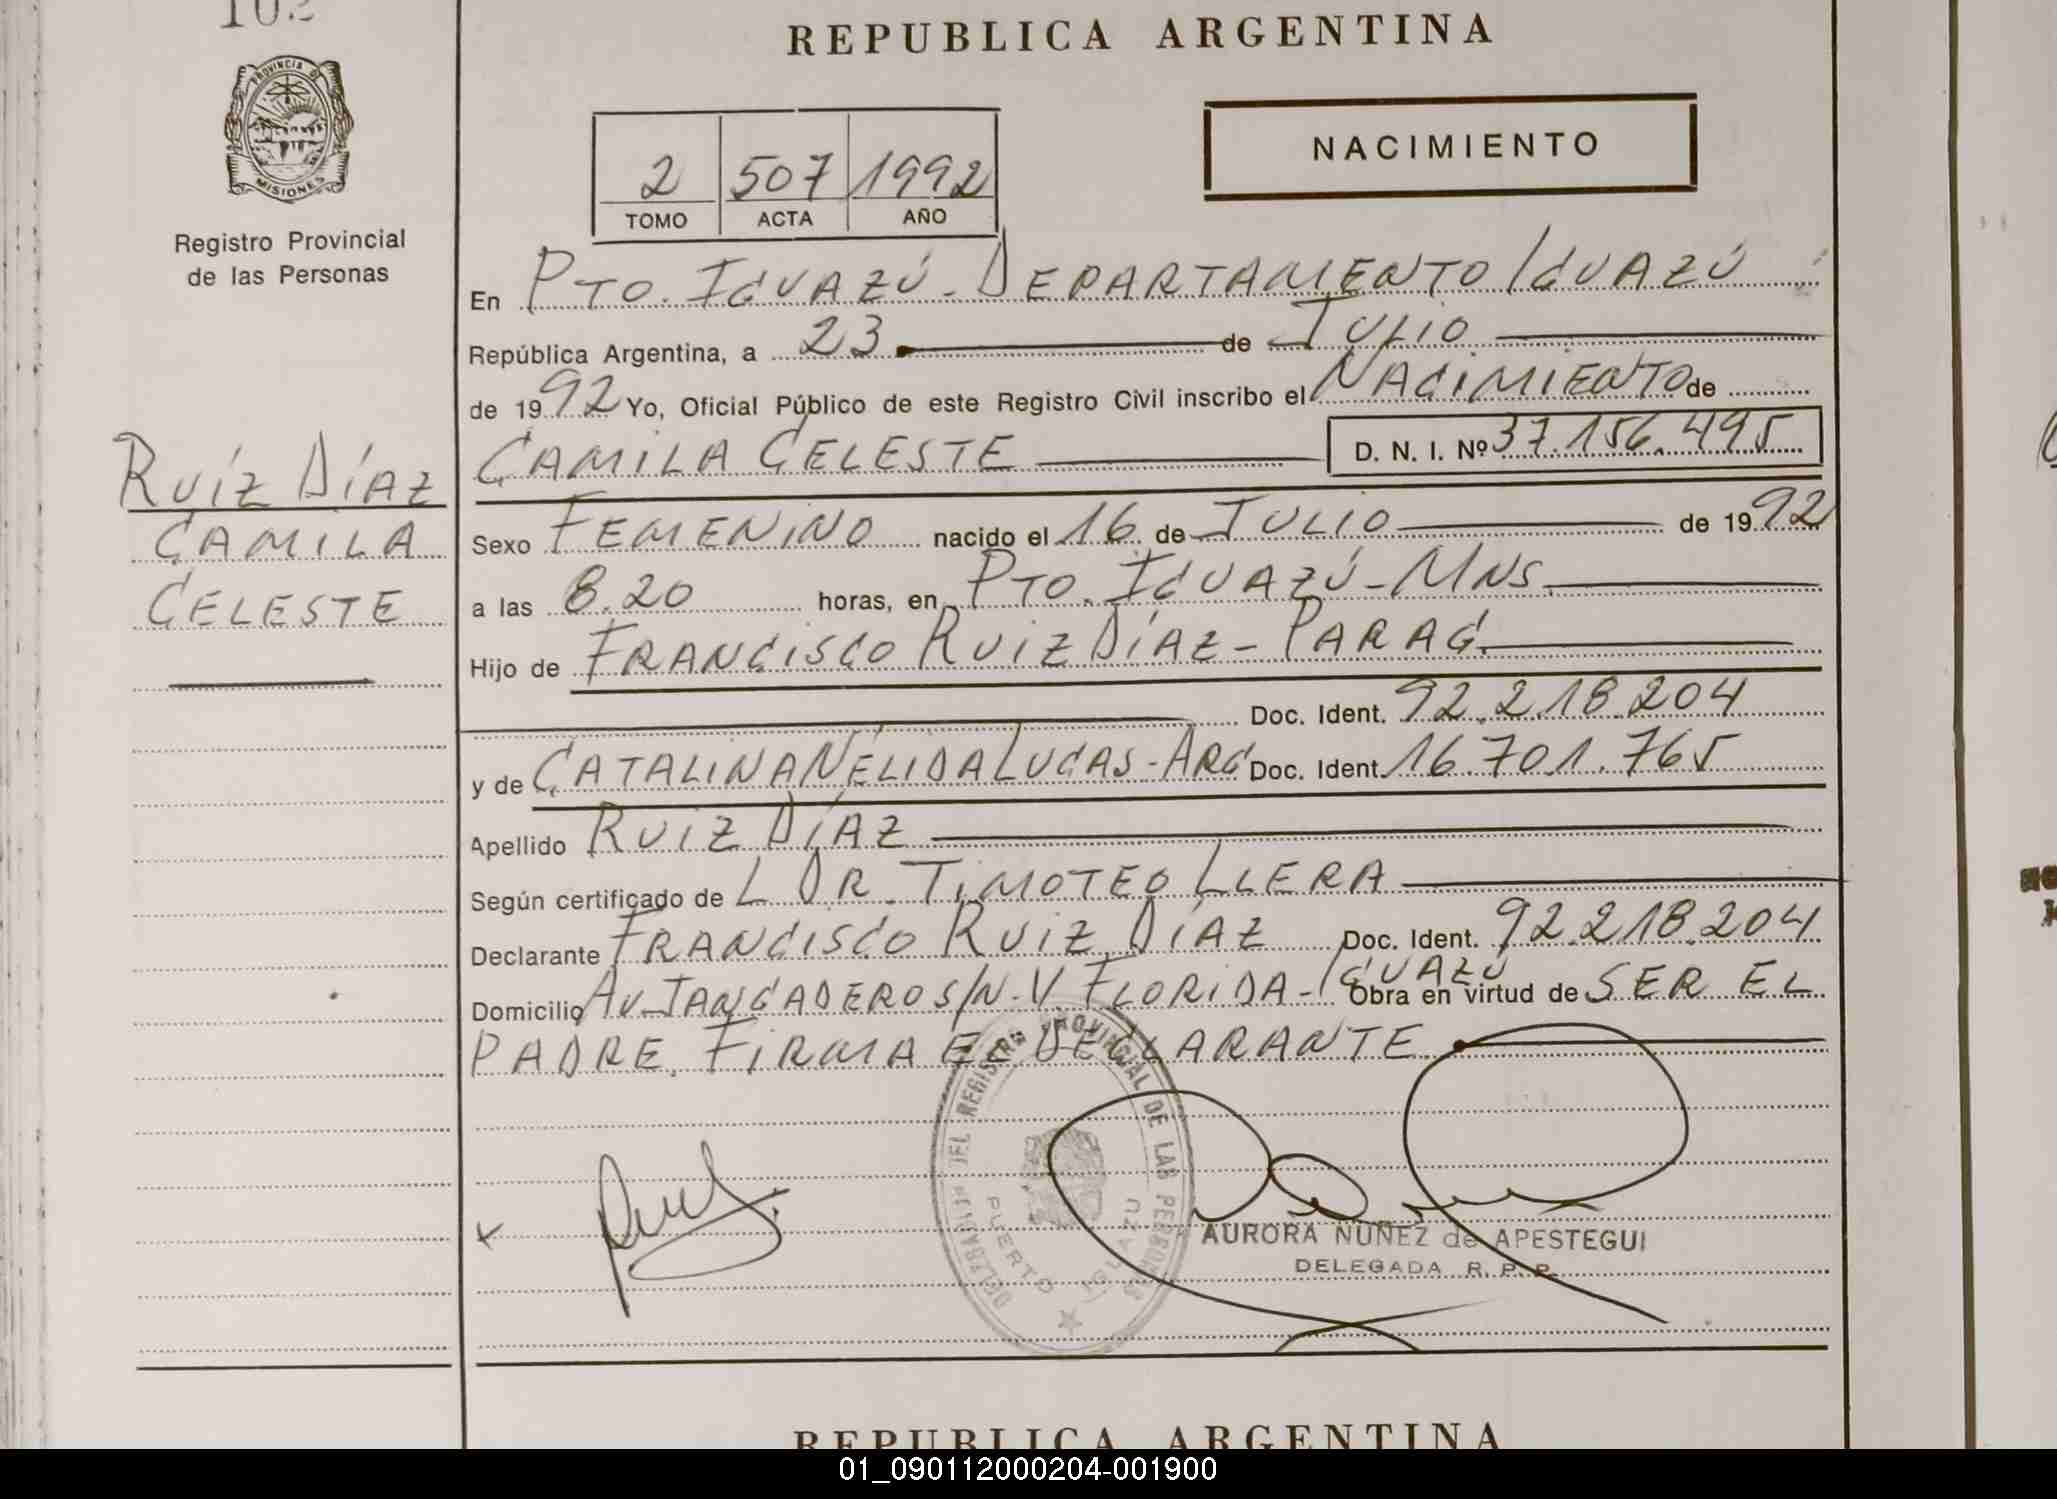 REPUBLICA ARGENTINA
PROVINCIA DE
MISIONES
Registro Provincial
de las Personas
2 507 1992
TOMO ACTA AÑO
NACIMIENTO
En PTO. IGUAZÚ - DEPARTAMENTO IGUAZÚ
República Argentina, a 23 de JULIO
de 1992 Yo, Oficial Público de este Registro Civil inscribo el NACIMIENTO de
CAMILA CELESTE D. N. I. Nº 37.156.495
RUÍZ DÍAZ
CAMILA
CELESTE
Sexo FEMENINO nacido el 16 de JULIO de 1992
a las 8.20 horas, en PTO. IGUAZÚ - MNS.
Hijo de FRANCISCO RUIZ DÍAZ - PARAG.
Doc. Ident. 92.218.204
y de CATALINA NÉLIDA LUCAS - ARG Doc. Ident. 16.701.765
Apellido RUIZ DÍAZ
Según certificado de L DR. TIMOTEO LLERA
Declarante FRANCISCO RUIZ DÍAZ Doc. Ident. 92.218.204
Domicilio AV. TANGADEROS S/N. V FLORIDA - IGUAZÚ Obra en virtud de SER EL
PADRE. FIRMA EL DECLARANTE
DELEGACIÓN DEL REGISTRO PROVINCIAL DE LAS PERSONAS
PUERTO IGUAZU
AURORA NUÑEZ de APESTEGUI
DELEGADA R. P. P.
REPUBLICA ARGENTINA
01_090112000204-001900